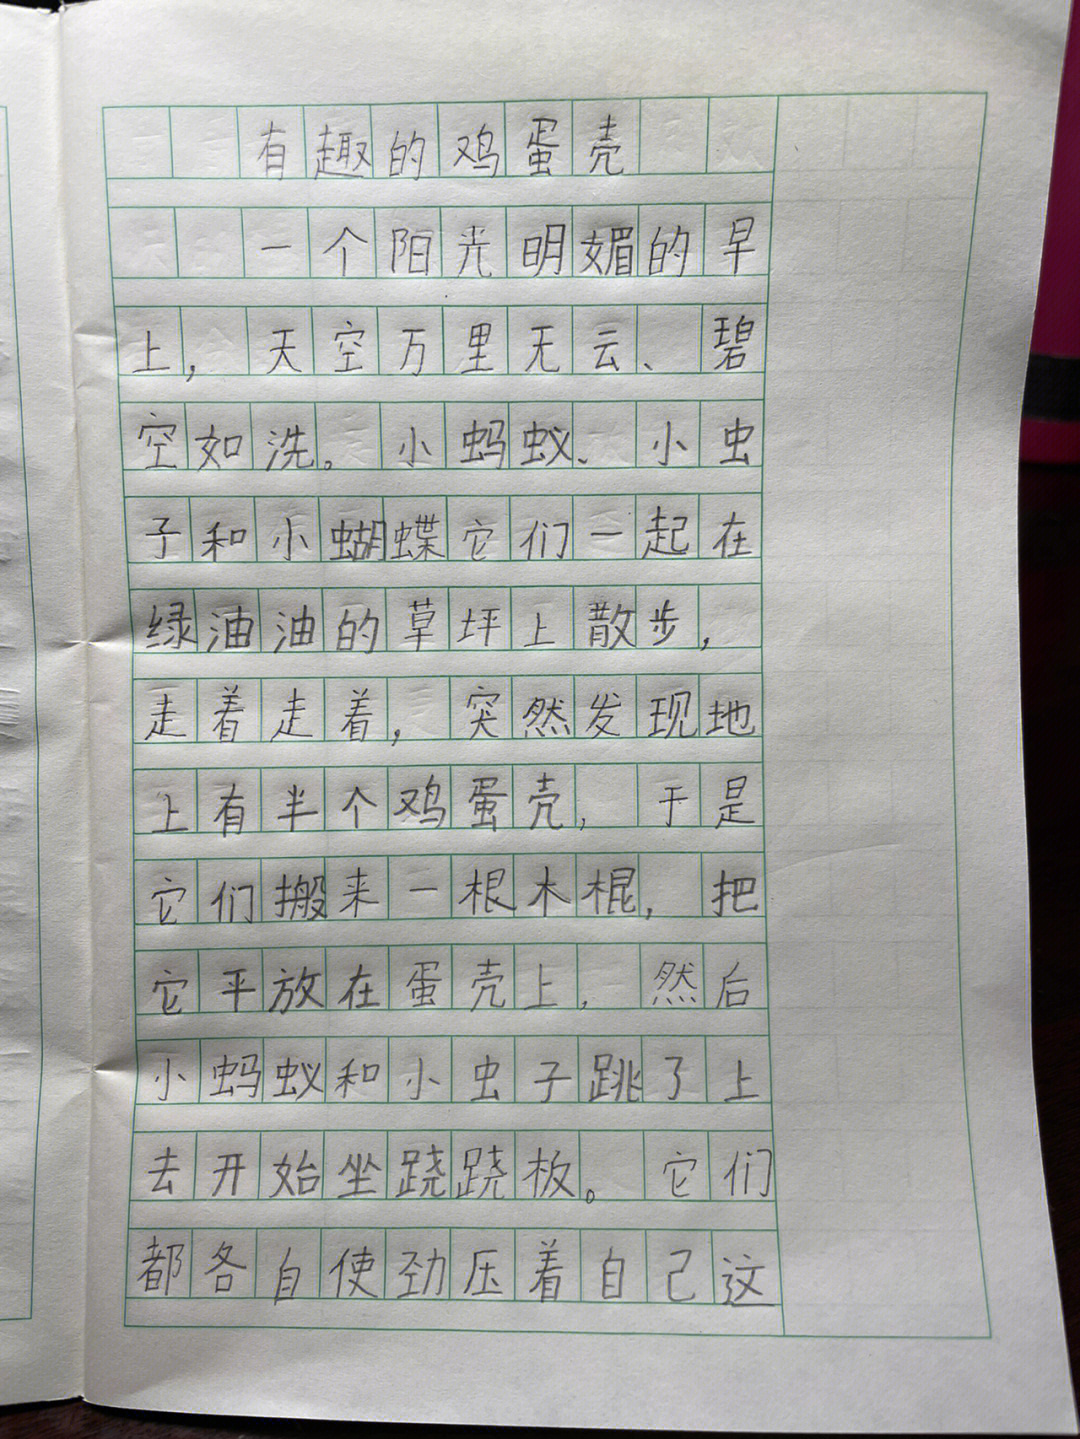 有趣的鸡蛋壳
一个阳光明媚的早
上，天空万里无云、碧
空如洗。小蚂蚁、小虫
子和小蝴蝶它们一起在
绿油油的草坪上散步，
走着走着，突然发现地
上有半个鸡蛋壳，于是
它们搬来一根木棍，把
它平放在蛋壳上，然后
小蚂蚁和小虫子跳了上
去开始坐跷跷板。它们
都各自使劲压着自己这